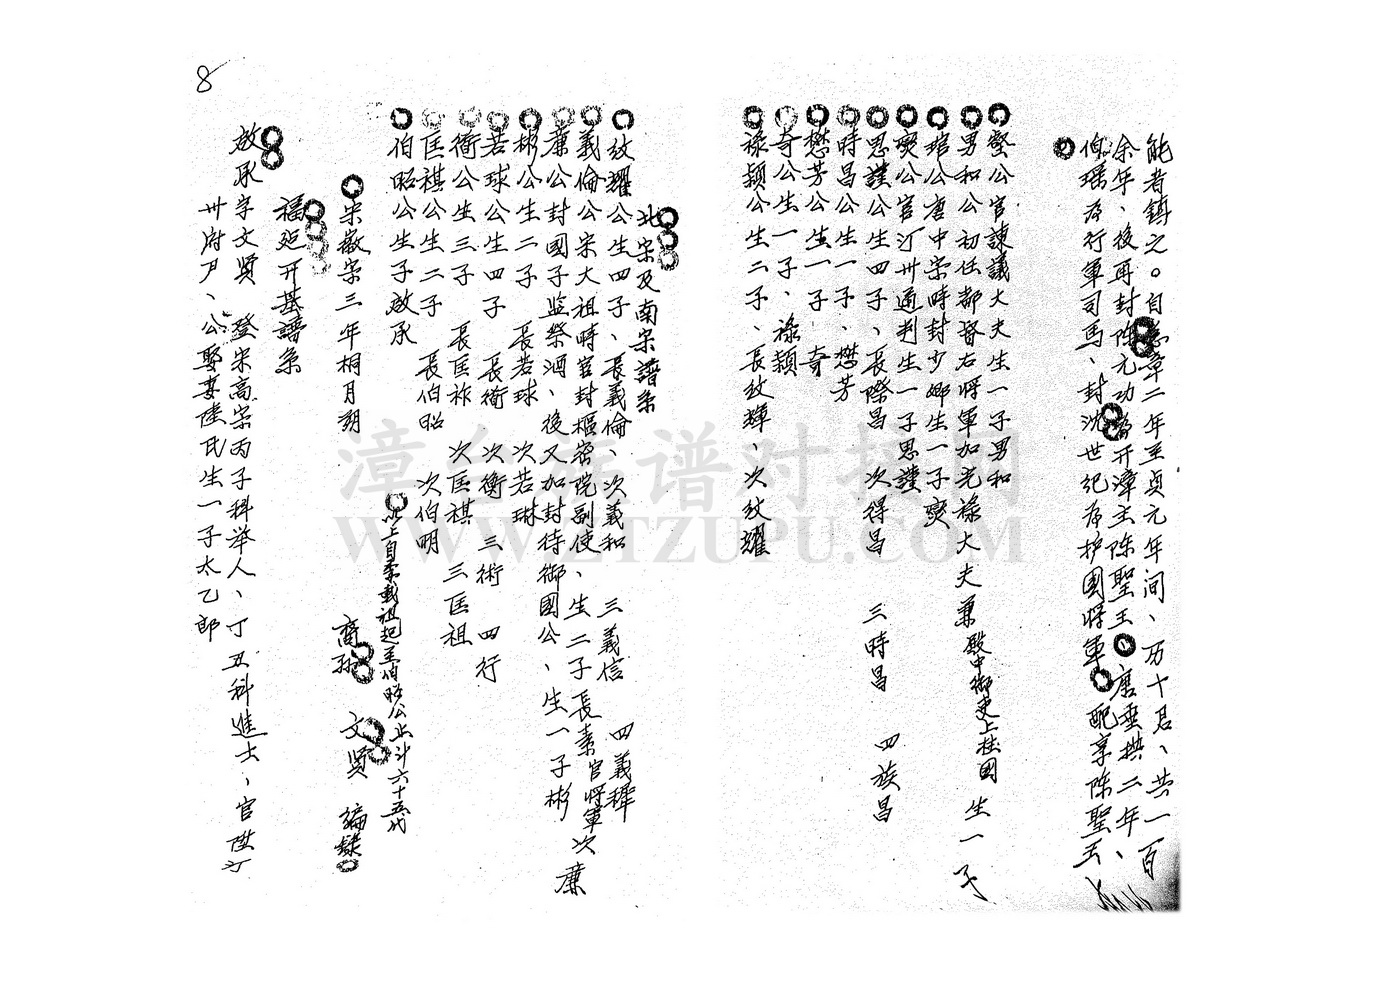 能者鎮之。自总章二年至貞元年间、历十君、共一百
余年、後再封陈元功 开漳主陈聖王 唐垂拱二年、
伯瑶为行軍司馬、封沈世纪为护國将軍 配享陈聖王
公官諫議大夫生一子男和
男和公初任都督右将軍加光禄大夫兼殿中御史上柱國 生一子
琯公唐中宗時封少卿生一子奭
奭公官汀卅通判生一子思謹
思謹公生四子、長際昌 次得昌 三時昌 四族昌
時昌公生一子、懋芳
懋芳公生一子 奇
奇公生一子、禄穎
禄穎公生二子、長纹輝、次纹耀
北宋及南宋譜系
纹耀公生四子、長義倫、次義和 三義信 四義穉
義倫公宋太祖時官封樞密院副使、生二子長素官将軍次廉
廉公封國子监祭酒、後又加封待御國公、生一子彬
彬公生二子 長若球 次若琳
若球公生四子 長衛 次衡 三術 四行
衛公生三子 長匡祚 次匡祺 三匡祖
匡祺公生二子 長伯昭 次伯明
伯昭公生子啟承
以上自 載祖起至伯昭公止计六十五代
宋徽宗三年桐月朔 裔孙 文贤 编録
福 开基譜系
啟承字文贤 登宋高宗丙子科举人、丁丑科進士、官陞汀
卅府尹、公娶妻陆氏生一子太乙郎
8
漳台族谱对接网
WWW.ZTZUPU.COM